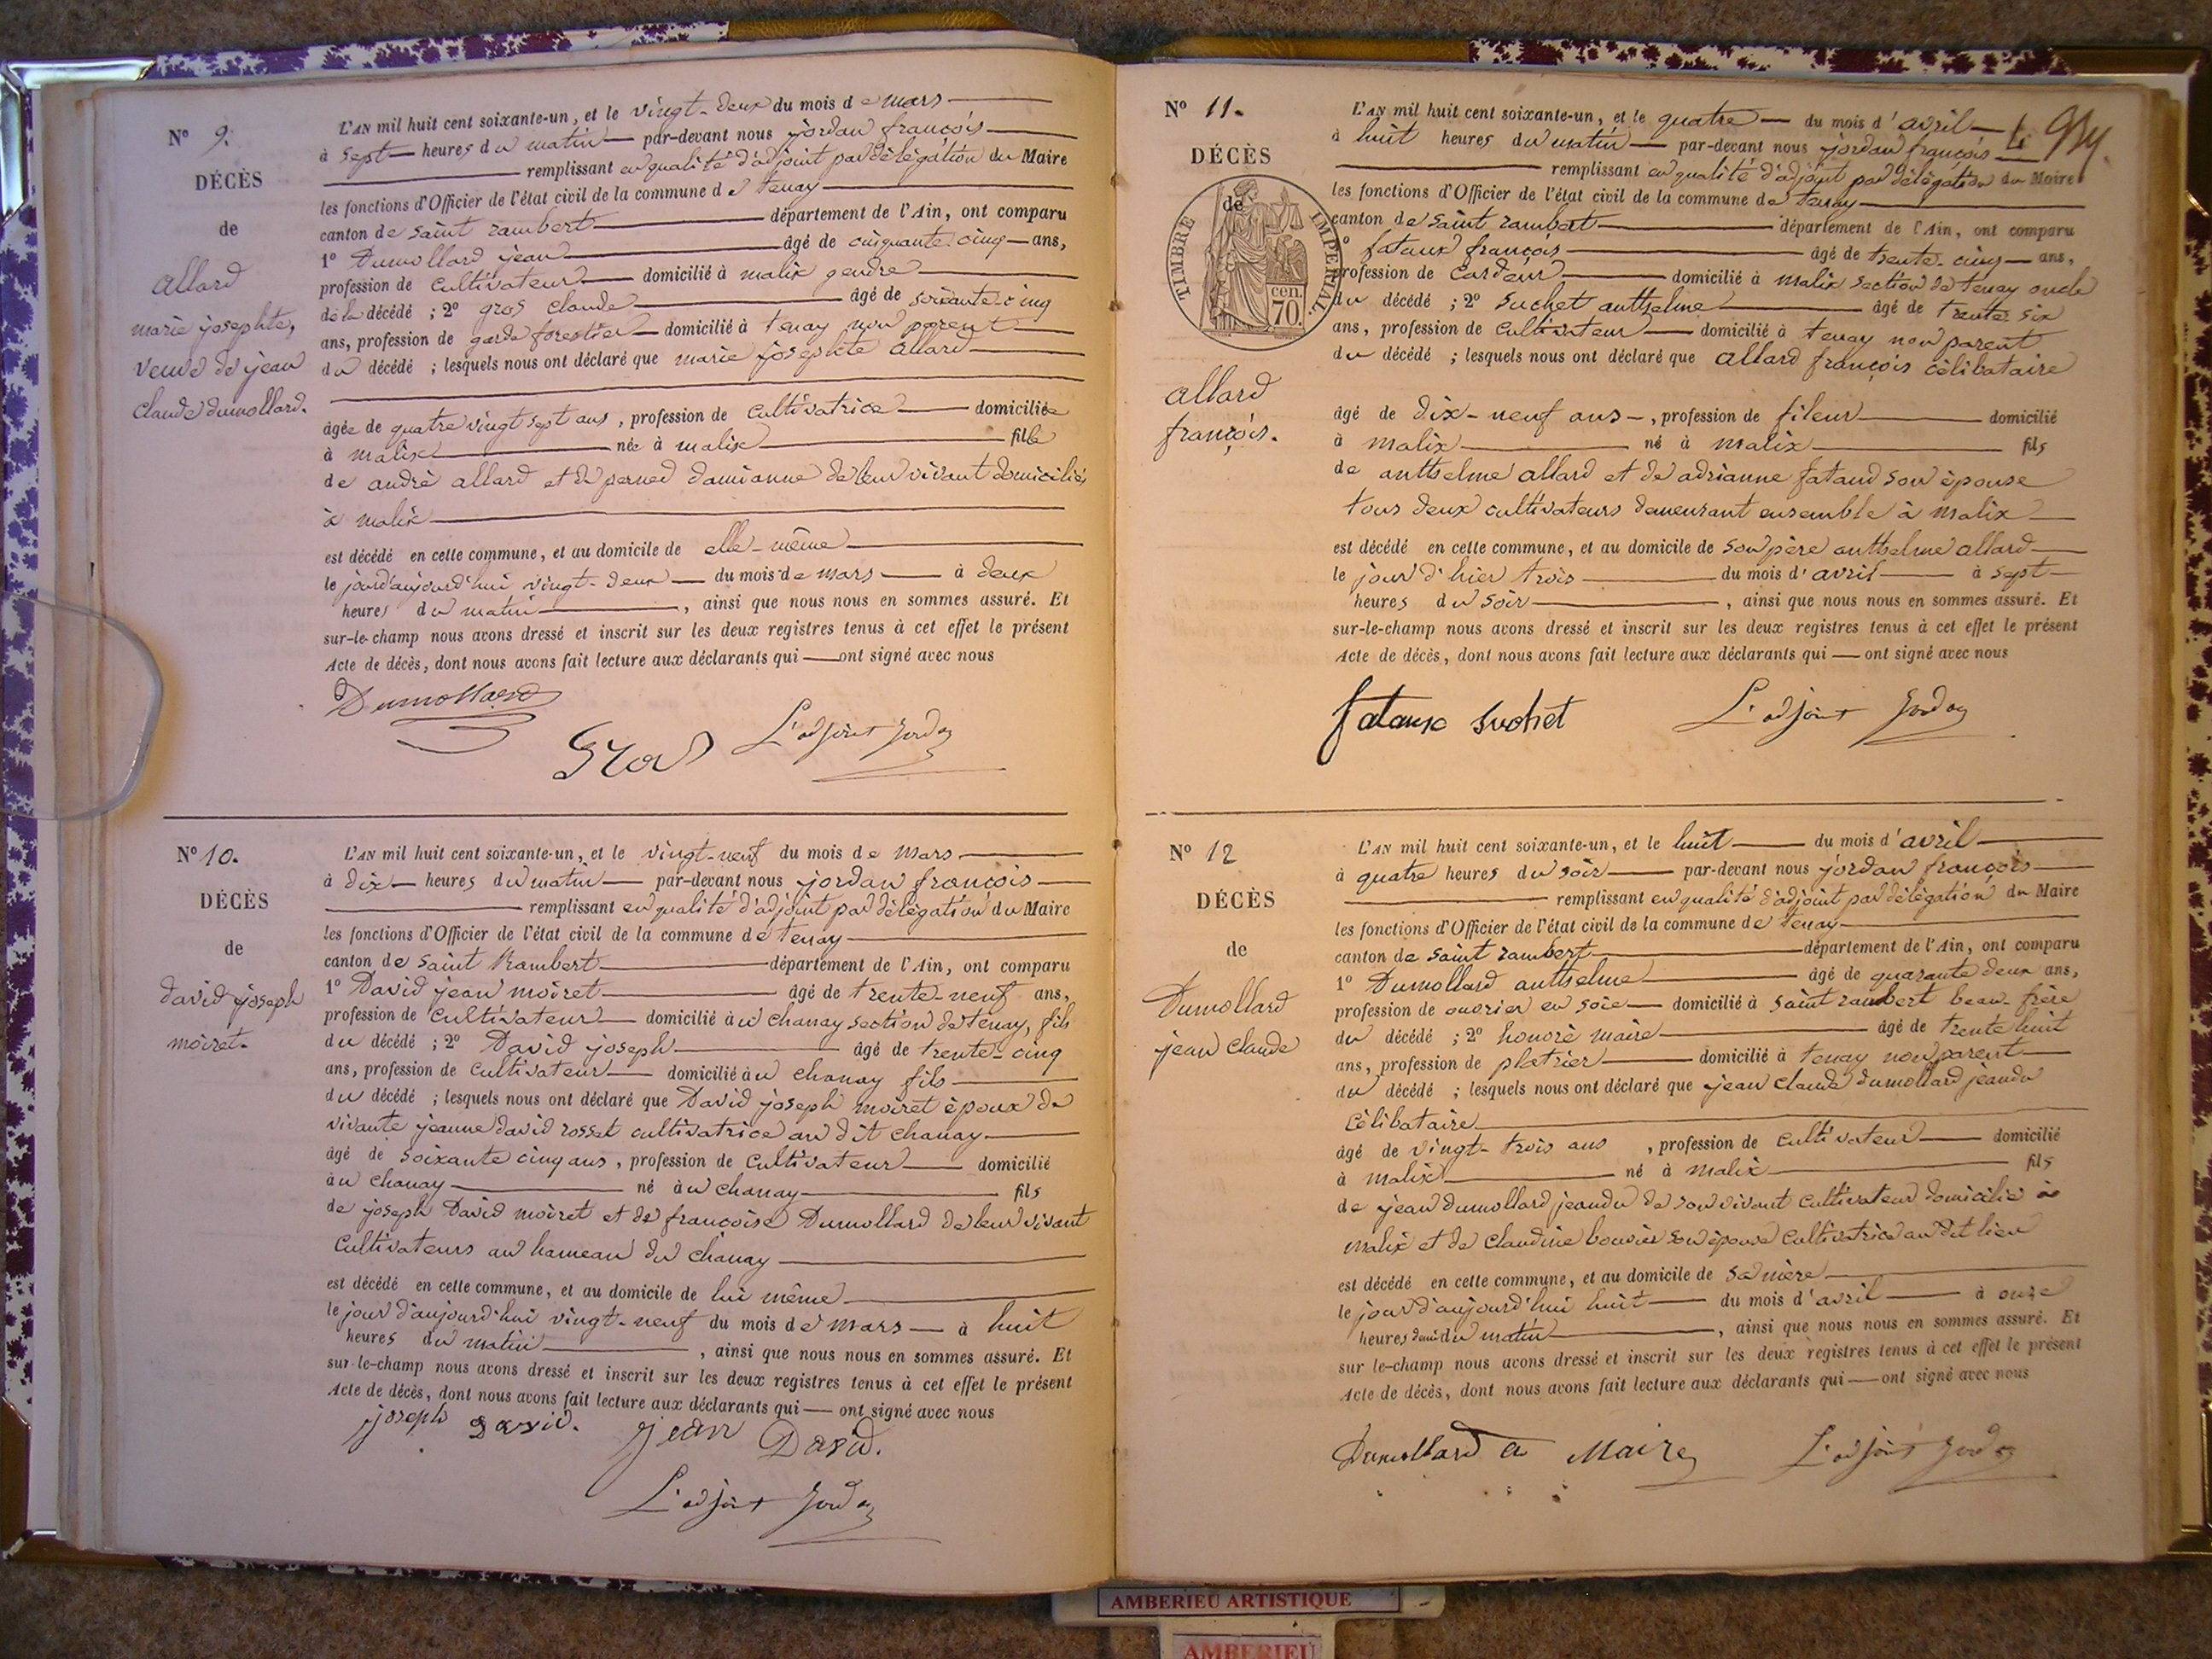 N° 9.
DÉCÈS
de
allard
marie josephte,
veuve de jean
claude dumollard.
L'AN mil huit cent soixante-un, et le vingt-deux du mois de mars
à sept heures du matin par-devant nous jordan françois
remplissant en qualité d'adjoint par délégation du Maire
les fonctions d'Officier de l'état civil de la commune de tenay
canton de saint rambert département de l'Ain, ont comparu
1° Dumollard jean âgé de cinquante cinq ans,
profession de cultivateur domicilié à malix gendre
de la décédé ; 2° gros claude âgé de soixante cinq
ans, profession de garde forestier domicilié à tenay non parent
du décédé ; lesquels nous ont déclaré que marie josephte allard
âgée de quatre vingt sept ans, profession de cultivatrice domiciliée
à malix née à malix fille
de andré allard et de perned damianne de leur vivant domiciliés
à malix
est décédé en cette commune, et au domicile de elle-même
le jour d'aujourd'hui vingt-deux du mois de mars à deux
heures du matin, ainsi que nous nous en sommes assuré. Et
sur-le-champ nous avons dressé et inscrit sur les deux registres tenus à cet effet le présent
Acte de décès, dont nous avons fait lecture aux déclarants qui ont signé avec nous
Dumollard
Gros L'adjoint Jordan
N° 10.
DÉCÈS
de
david joseph
moiret.
L'AN mil huit cent soixante-un, et le vingt-neuf du mois de mars
à dix heures du matin par-devant nous jordan françois
remplissant en qualité d'adjoint par délégation du Maire
les fonctions d'Officier de l'état civil de la commune de tenay
canton de saint Rambert département de l'Ain, ont comparu
1° David jean moiret âgé de trente-neuf ans,
profession de cultivateur domicilié à u chanay section de tenay, fils
du décédé ; 2° David joseph âgé de trente-cinq
ans, profession de cultivateur domicilié àu chanay fils
du décédé ; lesquels nous ont déclaré que David joseph moiret époux de
vivante jeanne david rosset cultivatrice au dit chanay
âgé de soixante cinq ans, profession de cultivateur domicilié
àu chanay né àu chanay fils
de joseph David moiret et de françoise Dumollard de leur vivant
cultivateurs au hameau du chanay
est décédé en cette commune, et au domicile de lui même
le jour d'aujourd'hui vingt-neuf du mois de mars à huit
heures du matin, ainsi que nous nous en sommes assuré. Et
sur-le-champ nous avons dressé et inscrit sur les deux registres tenus à cet effet le présent
Acte de décès, dont nous avons fait lecture aux déclarants qui ont signé avec nous
joseph david. jean David.
L'adjoint Jordan
N° 11.
DÉCÈS
de
TIMBRE IMPERIAL
cen.
70.
allard
françois.
L'AN mil huit cent soixante-un, et le quatre du mois d'avril
à huit heures du matin par-devant nous jordan françois
remplissant en qualité d'adjoint par délégation du Maire
les fonctions d'Officier de l'état civil de la commune de tenay
canton de saint rambert département de l'Ain, ont comparu
fataux françois âgé de trente-cinq ans,
profession de cardeur domicilié à malix section de tenay oncle
du décédé ; 2° suchet anthelme âgé de trente six
ans, profession de cultivateur domicilié à tenay non parent
du décédé ; lesquels nous ont déclaré que allard françois célibataire
âgé de dix-neuf ans, profession de fileur domicilié
à malix né à malix fils
de anthelme allard et de adrianne fataud son épouse
tous deux cultivateurs demeurant ensemble à malix
est décédé en cette commune, et au domicile de son père anthelme allard
le jour d'hier trois du mois d'avril à sept
heures du soir, ainsi que nous nous en sommes assuré. Et
sur-le-champ nous avons dressé et inscrit sur les deux registres tenus à cet effet le présent
Acte de décès, dont nous avons fait lecture aux déclarants qui ont signé avec nous
fataux suchet L'adjoint Jordan
N° 12
DÉCÈS
de
Dumollard
jean claude
L'AN mil huit cent soixante-un, et le huit du mois d'avril
à quatre heures du soir par-devant nous jordan françois
remplissant en qualité d'adjoint par délégation du Maire
les fonctions d'Officier de l'état civil de la commune de tenay
canton de saint rambert département de l'Ain, ont comparu
1° Dumollard anthelme âgé de quarante deux ans,
profession de ouvrier en soie domicilié à saint rambert beau-frère
du décédé ; 2° honoré maire âgé de trente huit
ans, profession de platrier domicilié à tenay non parent
du décédé ; lesquels nous ont déclaré que jean claude dumollard jeandu
célibataire
âgé de vingt-trois ans, profession de cultivateur domicilié
à malix né à malix fils
de jean dumollard jeandu de son vivant cultivateur domicilié à
malix et de claudine bouvier son épouse cultivatrice au dit lieu
est décédé en cette commune, et au domicile de sa mère
le jour d'aujourd'hui huit du mois d'avril à onze
heures demi du matin, ainsi que nous nous en sommes assuré. Et
sur le-champ nous avons dressé et inscrit sur les deux registres tenus à cet effet le présent
Acte de décès, dont nous avons fait lecture aux déclarants qui ont signé avec nous
Dumollard a Maire L'adjoint Jordan
AMBERIEU ARTISTIQUE
AMBERIEU